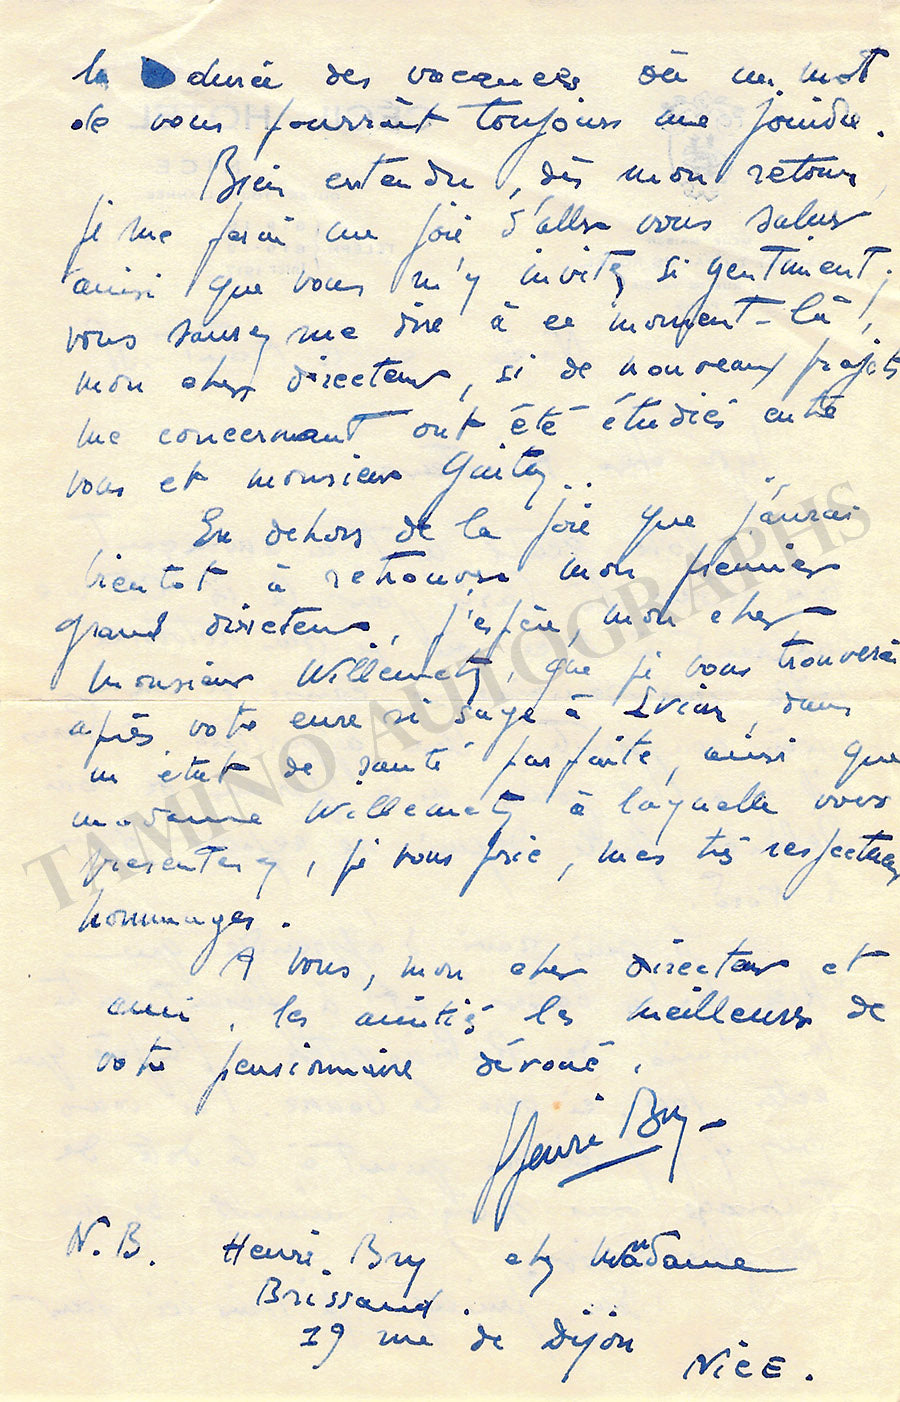 la durée des vacances où un mot
de vous pourrait toujours me joindre.
Bien entendu, dès mon retour,
je me ferai une joie d'aller vous saluer
ainsi que vous m'y invitez si gentiment;
vous saurez me dire à ce moment-là,
mon cher directeur, si de nouveaux projets
me concernant ont été étudiés entre
vous et monsieur Guitry..
En dehors de la joie que j'aurai
bientot à retrouver mon premier
grand directeur, j'espère, mon cher
monsieur Willemetz, que je vous trouverai
après votre cure si sage à Evian, dans
un état de santé parfaite, ainsi que
madame Willemetz à laquelle vous
presenterez, je vous prie, mes très respectueux
hommages.
A vous, mon cher directeur et
ami, les amitiés les meilleures de
votre pensionnaire dévoué.
Henri Bry
N.B. Henri Bry chez Madame
Brissaud.
19 rue de Dijon
NiCE.
TAMINO AUTOGRAPHS